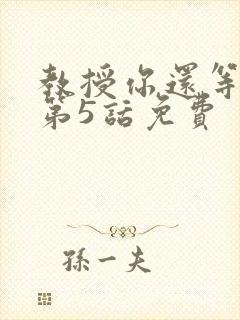 教授你還等
第5話免費
孫一夫